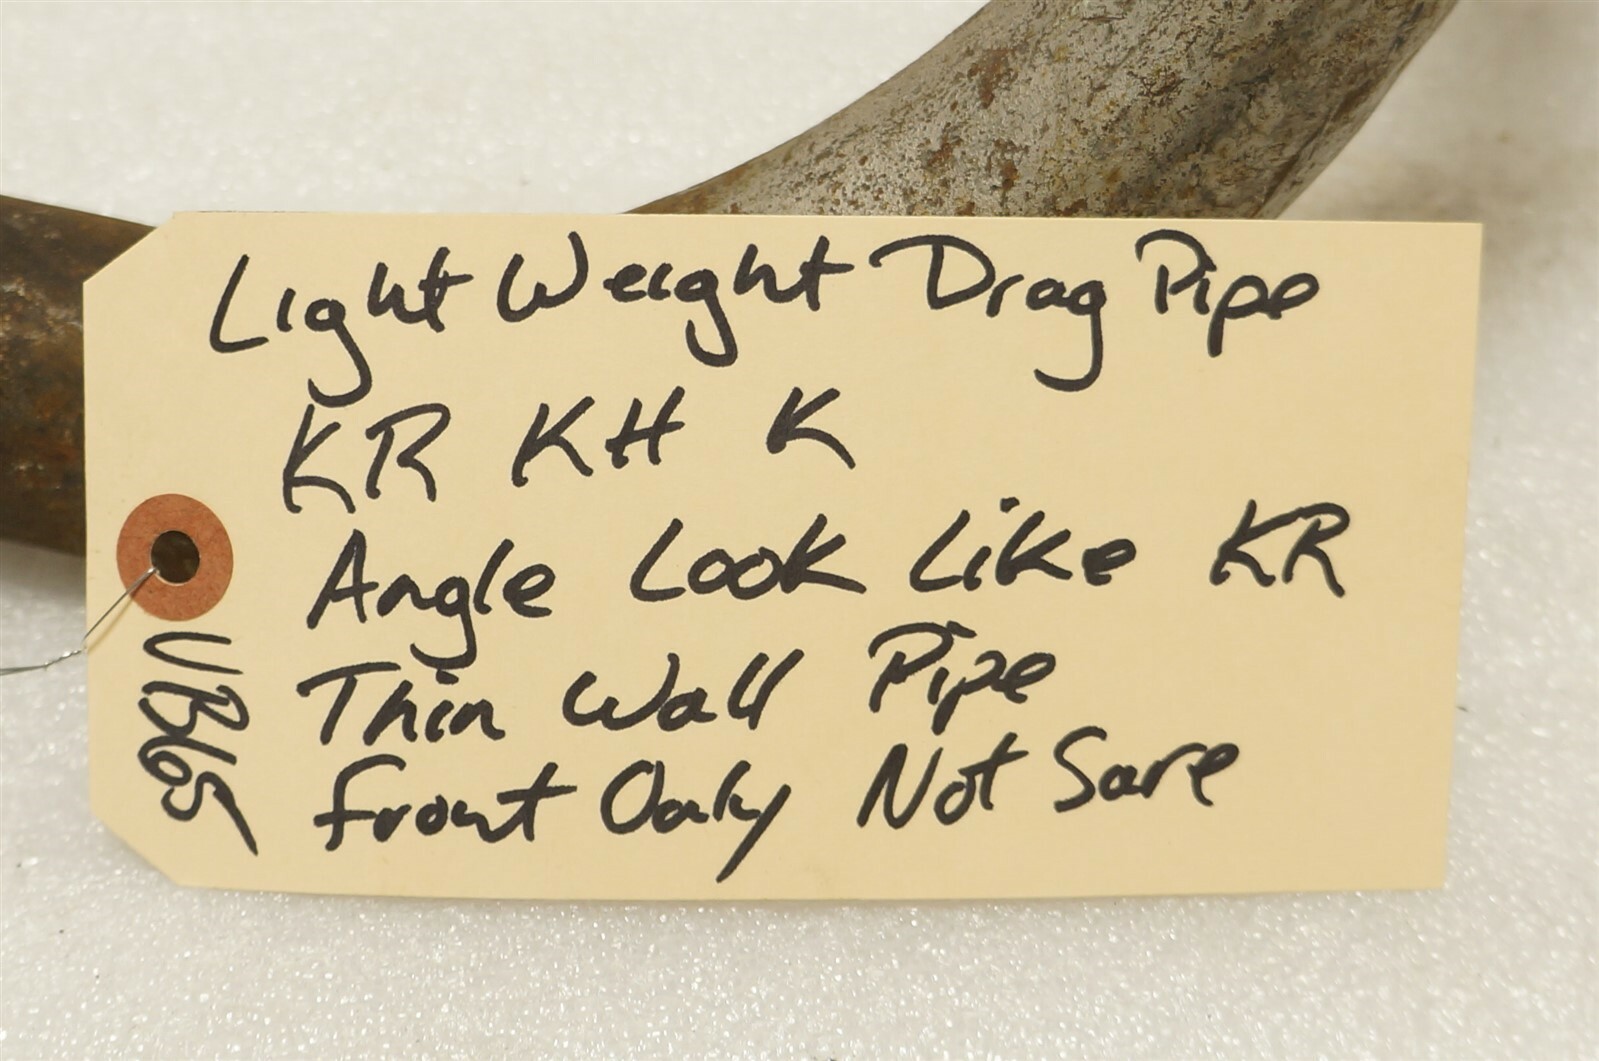 Light Weight Drag Pipe
KR KH K
Angle Look Like KR
Thin Wall Pipe
Front Only Not Sare
VB65